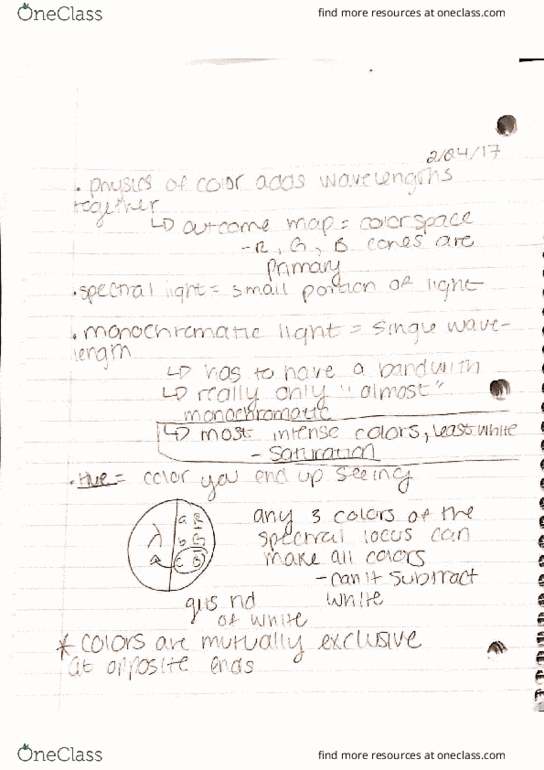 OneClass
find more resources at oneclass.com
2/04/17
. physics of color adds wavelengths
together
↳ outcome map = colorspace
- R, G, B cones are
primary
• spectral light = small portion of light
• monochromatic light = single wave-
length
↳ has to have a bandwith
↳ really only "almost"
monochromatic
↳ most intense colors, least white
- saturation
• Hue = color you end up seeing
any 3 colors of the
λ a R
spectral locus can
b G
make all colors
a c B
- can't subtract
white
of white
* colors are mutually exclusive
at opposite ends
OneClass
find more resources at oneclass.com